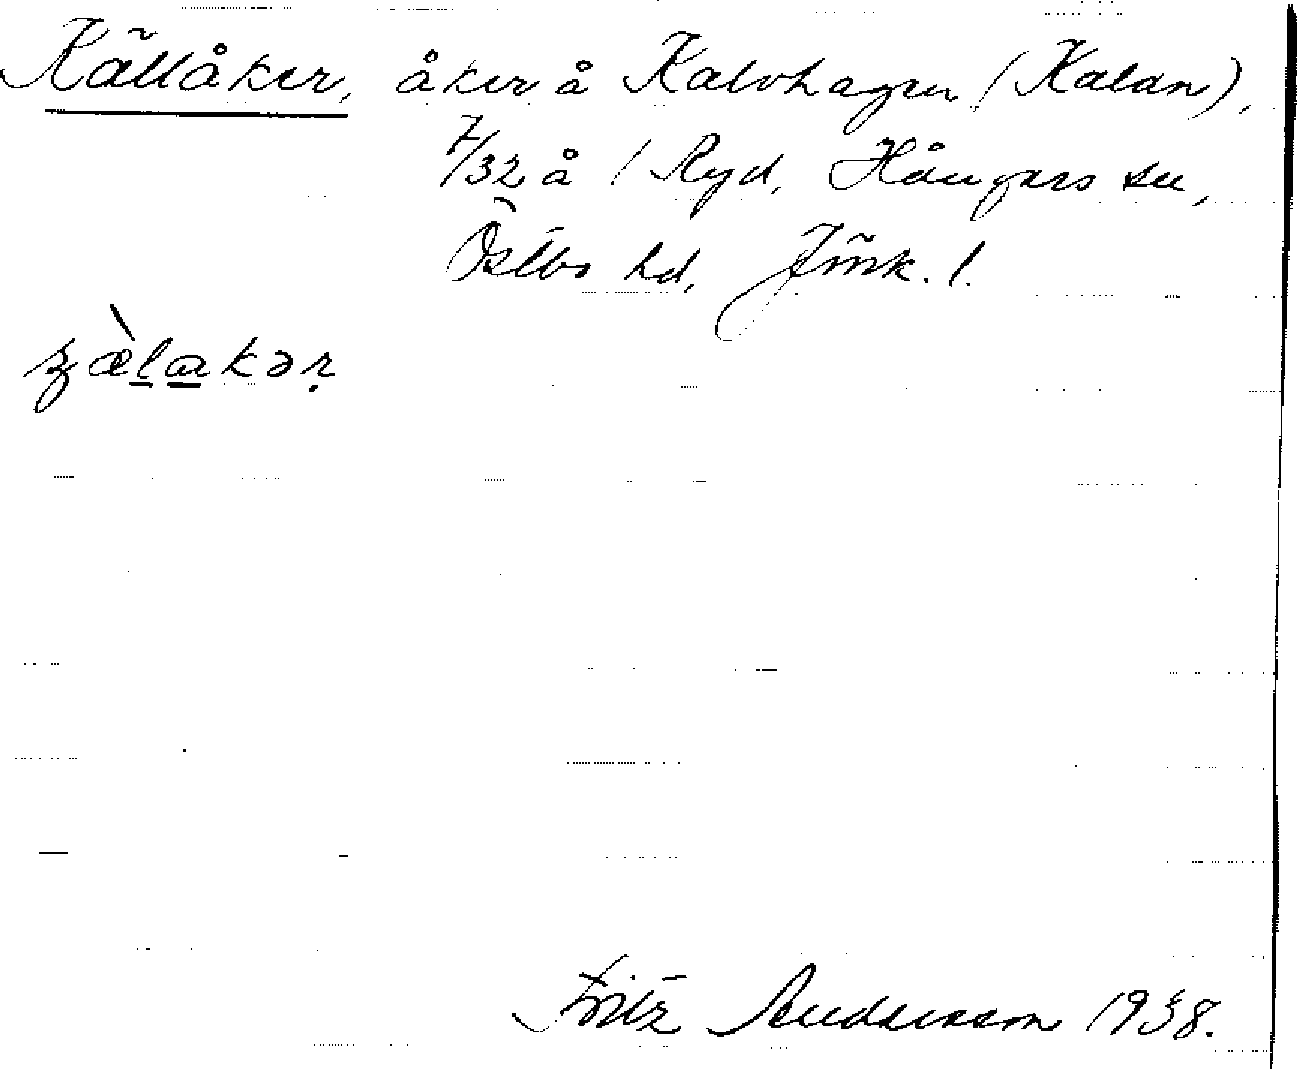 Källåker, åker å Kalvhagen (Kalan),
7/32 å 1 Ryd, Hångers sn,
Östbo hd, Jönk. l.
ɕæ̀lakər
Fritz Andersson 1938.